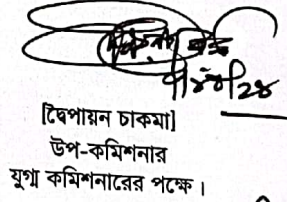 [দ্বৈপায়ন চাকমা]
উপ-কমিশনার
যুগ্ম কমিশনারের পক্ষে।